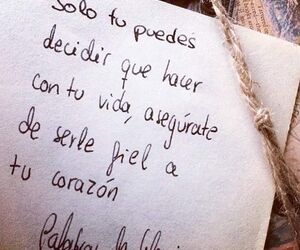 Solo tu puedes
decidir que hacer
con tu vida, asegúrate
de serle fiel a
tu corazón
Palabras